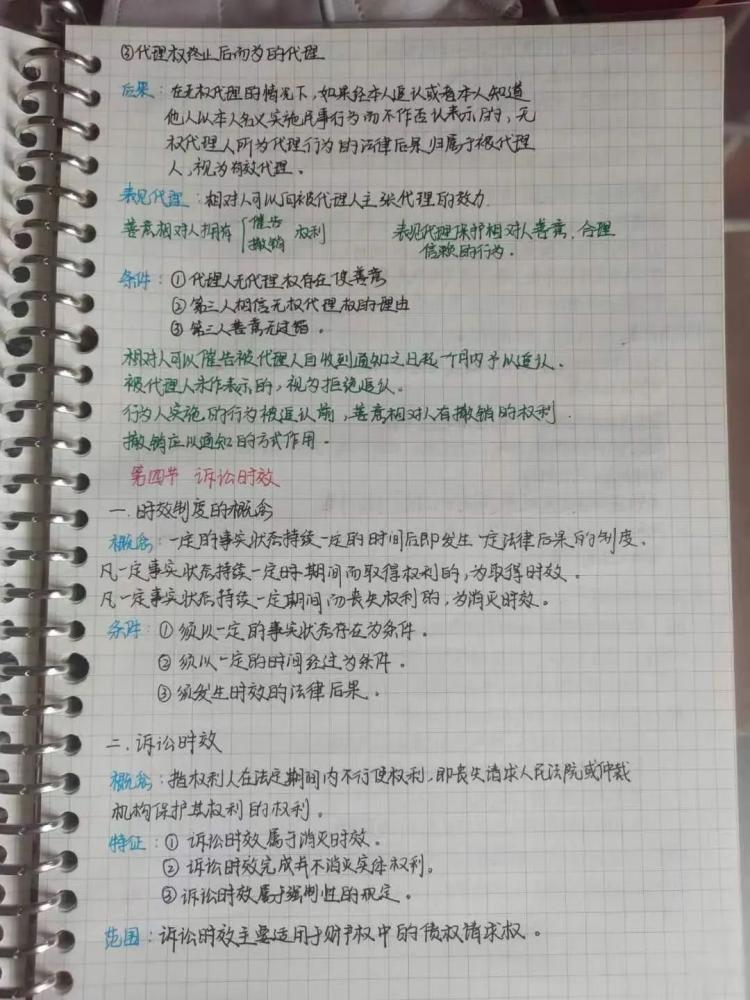 ③代理权终止后而为的代理
后果：在无权代理的情况下，如果经本人追认或者本人知道
他人以本人名义实施民事行为而不作否认表示的，无
权代理人所为代理行为的法律后果归属于被代理
人，视为有效代理。
表见代理：相对人可以向被代理人主张代理的效力
善意相对人拥有{催告 撤销 权利 表见代理保护相对人善意、合理
信赖的行为.
条件：①代理人无代理权存在使善意
②第三人相信无权代理权的理由
③第三人善意无过错。
相对人可以催告被代理人自收到通知之日起一个月内予以追认.
被代理人未作表示的，视为拒绝追认。
行为人实施的行为被追认前，善意相对人有撤销的权利.
撤销应以通知的方式作用.
第四节 诉讼时效
一.时效制度的概念
概念：一定的事实状态持续一定的时间后即发生一定法律后果的制度.
凡一定事实状态持续一定时期间而取得权利的，为取得时效.
凡一定事实状态持续一定期间而丧失权利的，为消灭时效.
条件：①须以一定的事实状态存在为条件.
②须以一定的时间经过为条件.
③须发生时效的法律后果.
二.诉讼时效
概念：指权利人在法定期间内不行使权利，即丧失请求人民法院或仲裁
机构保护其权利的权利.
特征：①诉讼时效属于消灭时效.
②诉讼时效完成并不消灭实体权利.
③诉讼时效属于强制性的规定.
范围：诉讼时效主要适用于财产权中的债权请求权.